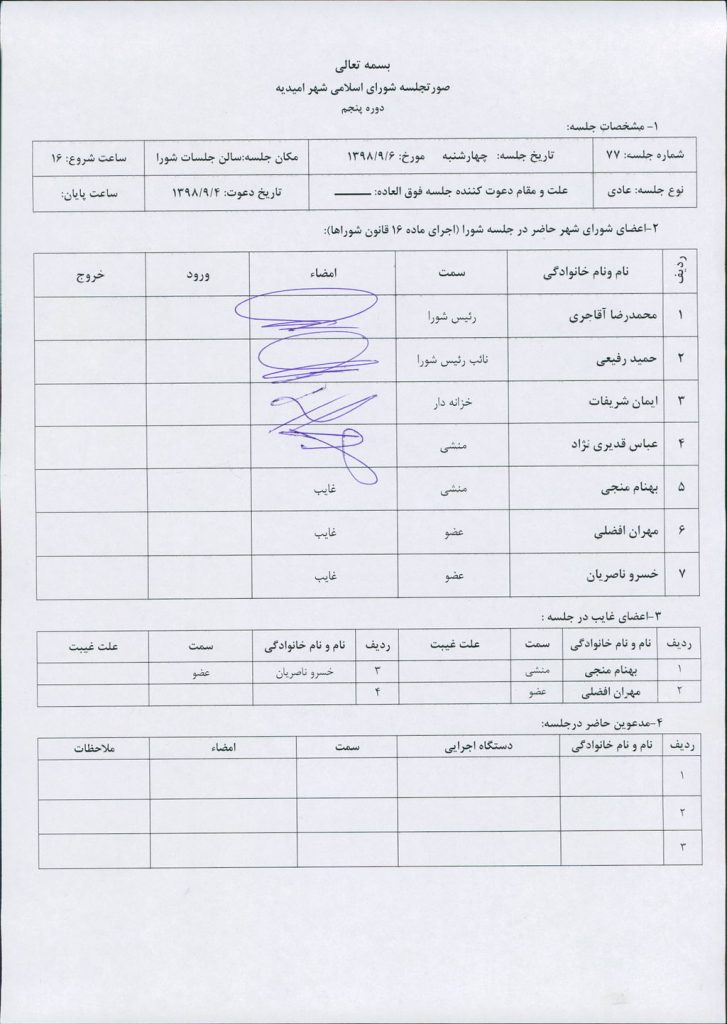 بسمه تعالی
صورتجلسه شورای اسلامی شهر امیدیه
دوره پنجم
۱- مشخصات جلسه:
شماره جلسه: ۷۷ تاریخ جلسه: چهارشنبه مورخ: ۱۳۹۸/۹/۶ مکان جلسه:سالن جلسات شورا ساعت شروع: ۱۶
نوع جلسه: عادی علت و مقام دعوت کننده جلسه فوق العاده: ــــــــ تاریخ دعوت: ۱۳۹۸/۹/۴ ساعت پایان:
۲-اعضای شورای شهر حاضر در جلسه شورا (اجرای ماده ۱۶ قانون شوراها):
ردیف نام ونام خانوادگی سمت امضاء ورود خروج
۱ محمدرضا آقاجری رئیس شورا
۲ حمید رفیعی نائب رئیس شورا
۳ ایمان شریفات خزانه دار
۴ عباس قدیری نژاد منشی
۵ بهنام منجی منشی غایب
۶ مهران افضلی عضو غایب
۷ خسرو ناصریان عضو غایب
۳-اعضای غایب در جلسه :
ردیف نام و نام خانوادگی سمت علت غیبت ردیف نام و نام خانوادگی سمت علت غیبت
۱ بهنام منجی منشی ۳ خسرو ناصریان عضو
۲ مهران افضلی عضو ۴
۴-مدعوین حاضر درجلسه:
ردیف نام و نام خانوادگی دستگاه اجرایی سمت امضاء ملاحظات
۱
۲
۳